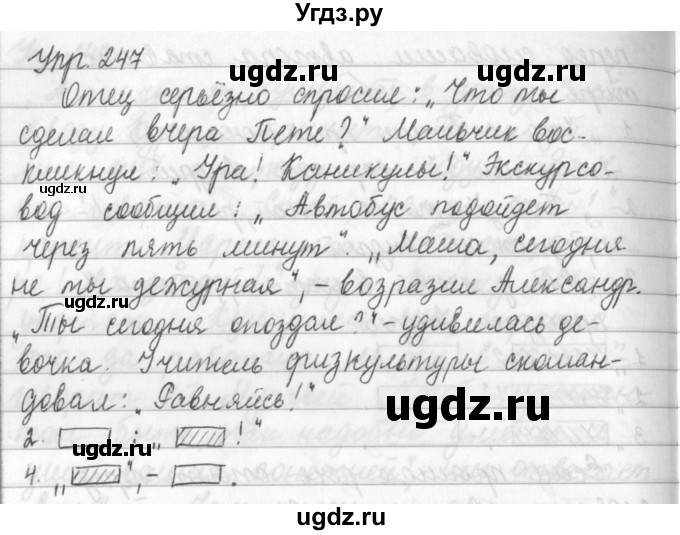 Угдз.ру
Упр. 247
ugdz.ru
ugdz.ru
Отец серьёзно спросил: „Что ты
сделал вчера Пете?" Мальчик вос-
ugdz.ru
кликнул: „Ура! Каникулы!" Экскурсо-
ugdz.ru
вод сообщил: „Автобус подойдет
ugdz.ru
через пять минут". „Маша, сегодня
не ты дежурная", – возразил Александр.
ugdz.ru
ugdz.ru
„Ты сегодня опоздал?" – удивилась де-
вочка. Учитель физкультуры скоман-
довал: „Равняйсь!"
ugdz.ru
2. : „ !"
4. „ ", – .
ugdz.ru
ugdz.ru